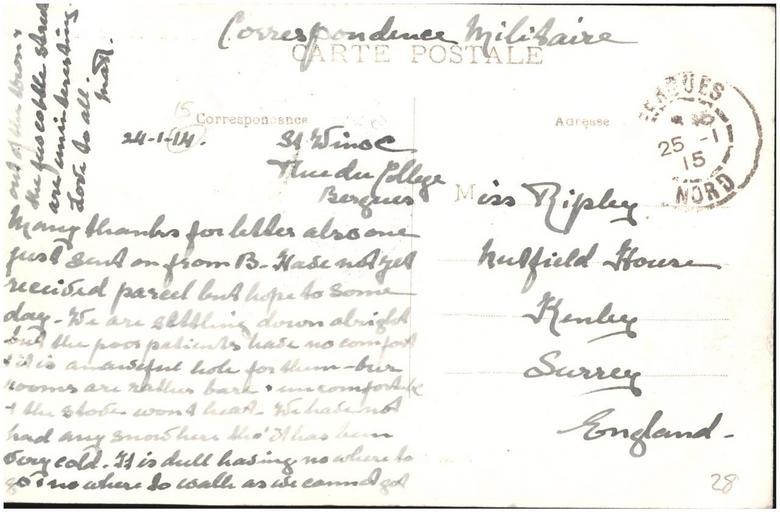 Correspondence Militaire
CARTE POSTALE
Correspondance
Adresse
BERGUES
25 - 1
15
NORD
15
24-1-14.
St Winoc
Rue du College
Bergues
Many thanks for letter also one
just sent on from B- Have not yet
received parcel but hope to some
day - We are settling down alright
but the poor patients have no comfort
& it is an awful hole for them - our
rooms are rather bare & uncomfortable
& the stove wont heat - We have not
had any snow here tho' it has been
very cold. It is dull having no where to
go & no where to walk as we cannot get
out of the town &
the streets
are uninteresting
Love to all.
Miss Ripley
Nutfield House
Kenley
Surrey
England -
28